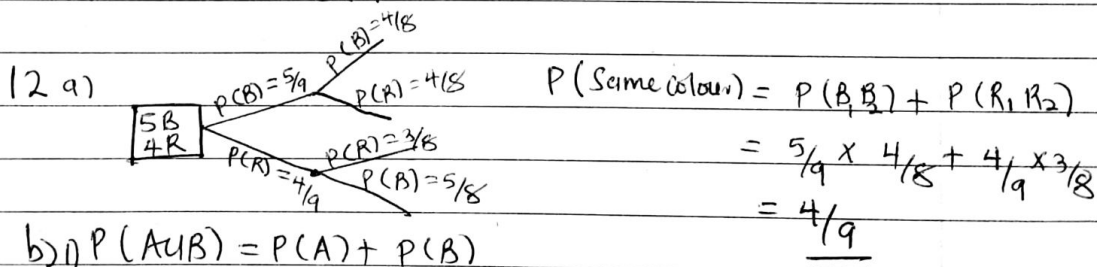 12 a)
5B
4R
P(B)=5/9
P(R)=4/9
P(B)=4/8
P(R)=4/8
P(R)=3/8
P(B)=5/8
P(Same colour) = P(B₁B₂) + P(R₁R₂)
= 5/9 × 4/8 + 4/9 × 3/8
= 4/9
b) i) P(A∪B) = P(A) + P(B)